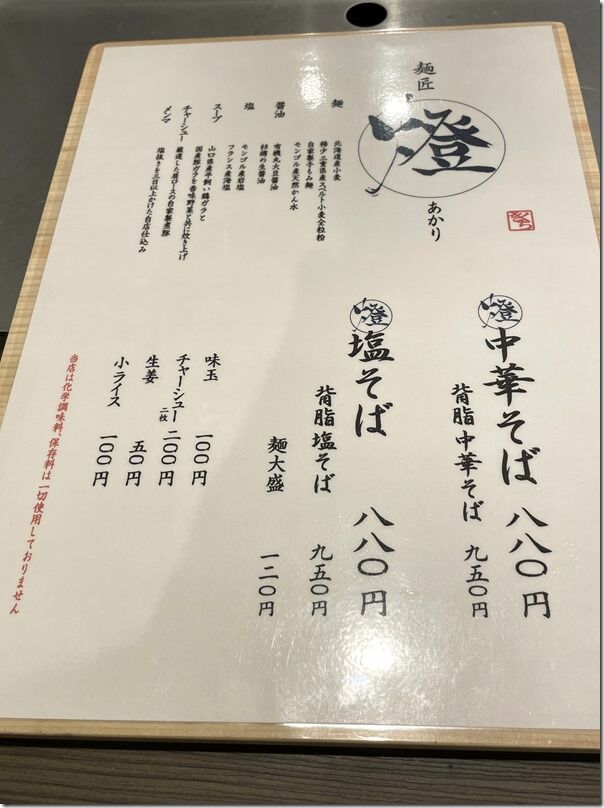 麺匠
燈
あかり
麺
北海道産小麦
稀少三重県産スペルト小麦全粒粉
自家製手もみ麺
モンゴル産天然かん水
醤油
有機丸大豆醤油
杉樽の生醤油
塩
モンゴル産岩塩
フランス産海塩
スープ
山口県産平飼い鶏ガラと
国産豚ガラを香味野菜と共に炊き上げ
チャーシュー
厳選した肩ロースの自家製煮豚
メンマ
塩抜きを三日以上かけた自店仕込み
燈
中華そば 八八〇円
背脂中華そば 九五〇円
燈
塩そば 八八〇円
背脂塩そば 九五〇円
麺大盛 一二〇円
味玉 一〇〇円
チャーシュー二枚 二〇〇円
生姜 五〇円
小ライス 一〇〇円
当店は化学調味料、保存料は一切使用しておりません